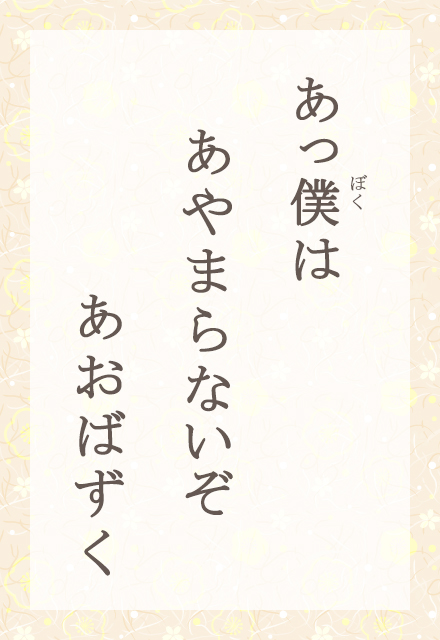 あっ僕は
ぼく
あやまらないぞ
あおばずく